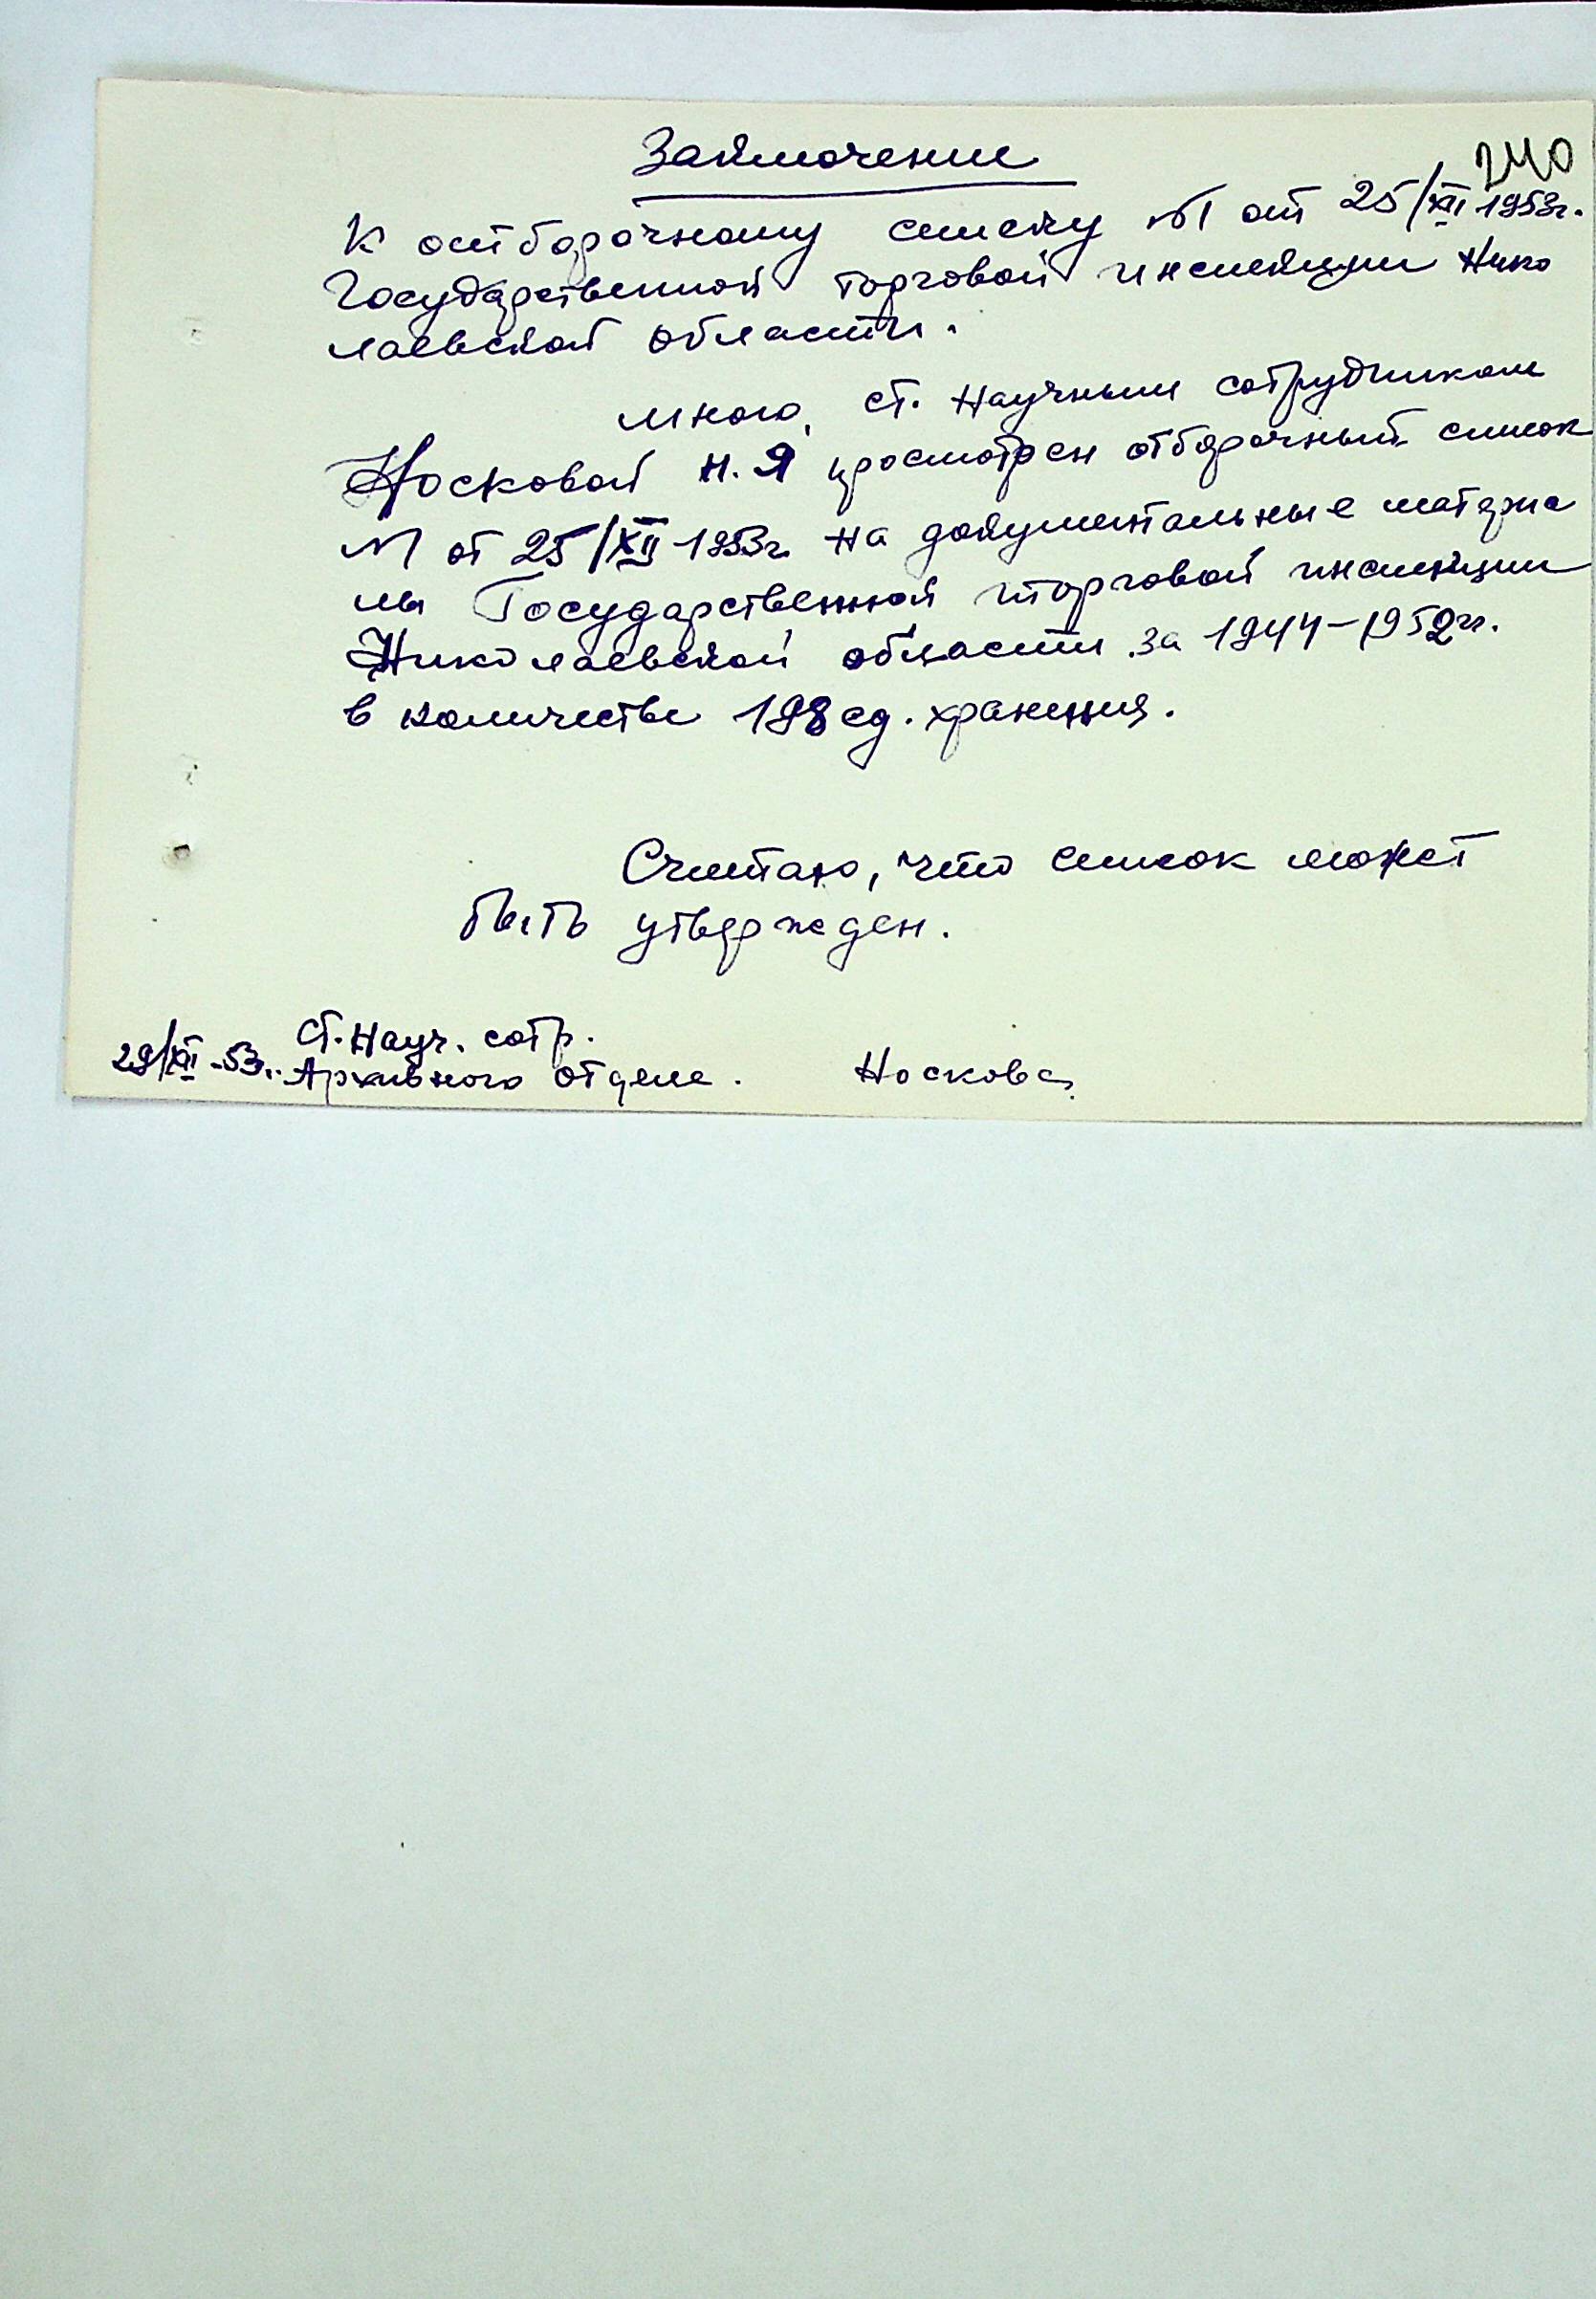 240
Заключение
К отборочному списку №1 от 25/XII 1953г.
Государственной торговой инспекции Нико
лаевской области.
Мною, ст. научным сотрудником
Носковой Н.Я просмотрен отборочный список
№1 от 25/XII-1953г. на документальные материа
лы Государственной торговой инспекции
Николаевской области за 1944-1952гг.
в количестве 198 ед. хранения.
Считаю, что список может
быть утвержден.
Ст. Науч. сотр.
29/XII-53г. Архивного отдела. Носкова